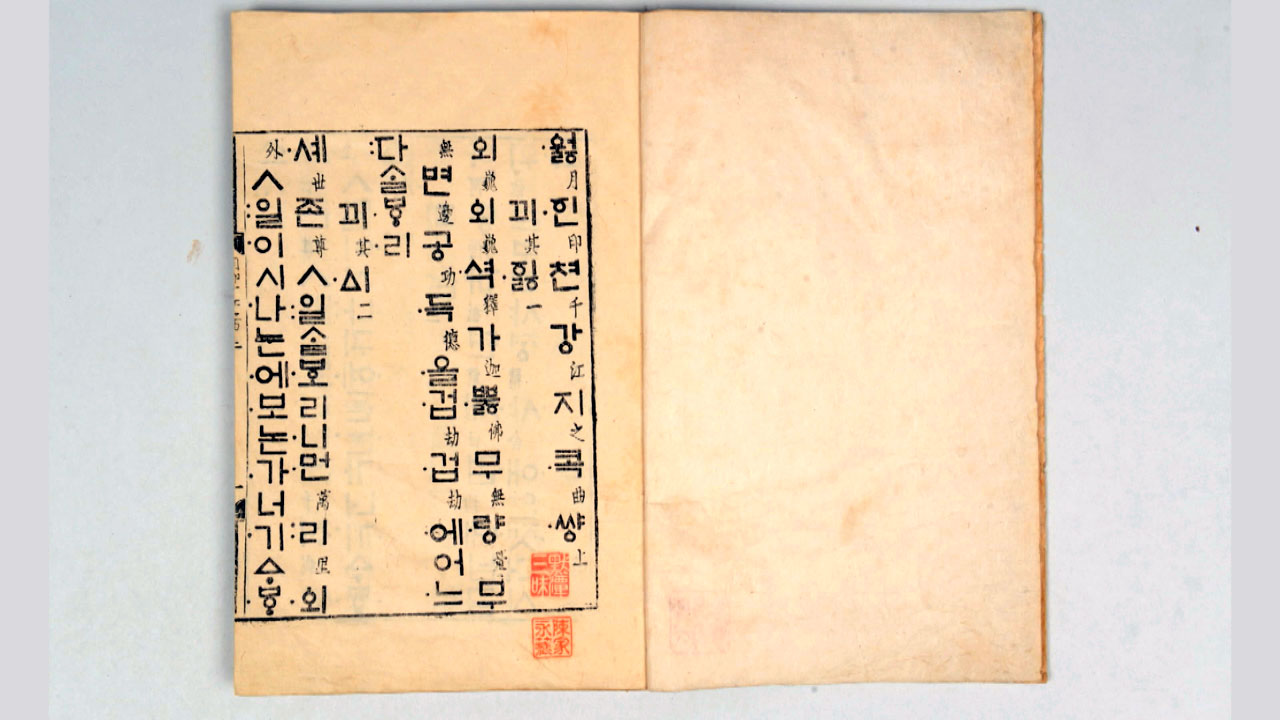 ·ᅌᅯᇙ月·힌印쳔千강江지之·콕曲·쌰ᇰ上
끠其·ᅙᅵᇙ一
외巍외巍·셕釋가迦·뿌ᇙ佛무無·량量무
無변邊궁功·득德을겁劫·겁劫·에어느
:다ᄉᆞᆯᄫᆞ·리
끠其·ᅀᅵ二
·셰世존尊ㅅ:일ᄉᆞᆯ·ᄫᅩ리·니·먼萬:리里·외
外ㅅ:일이시·나·눈·에보논·가너·기ᅀᆞ·ᄫᆞ
陳家永藏